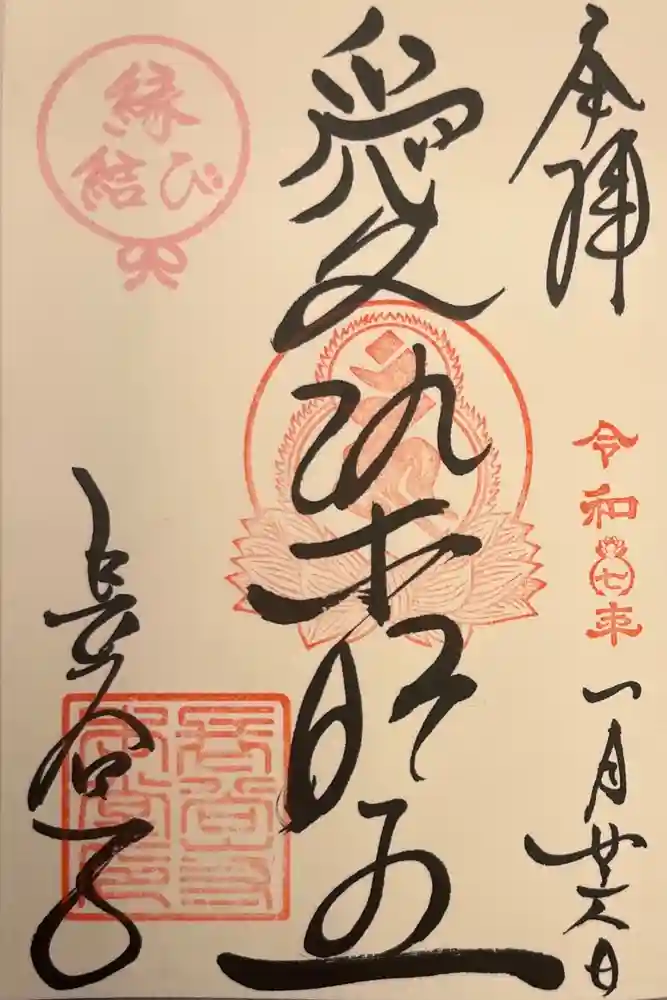 奉拝
令和七年一月廿六日
愛染明王
縁
結び
長谷寺